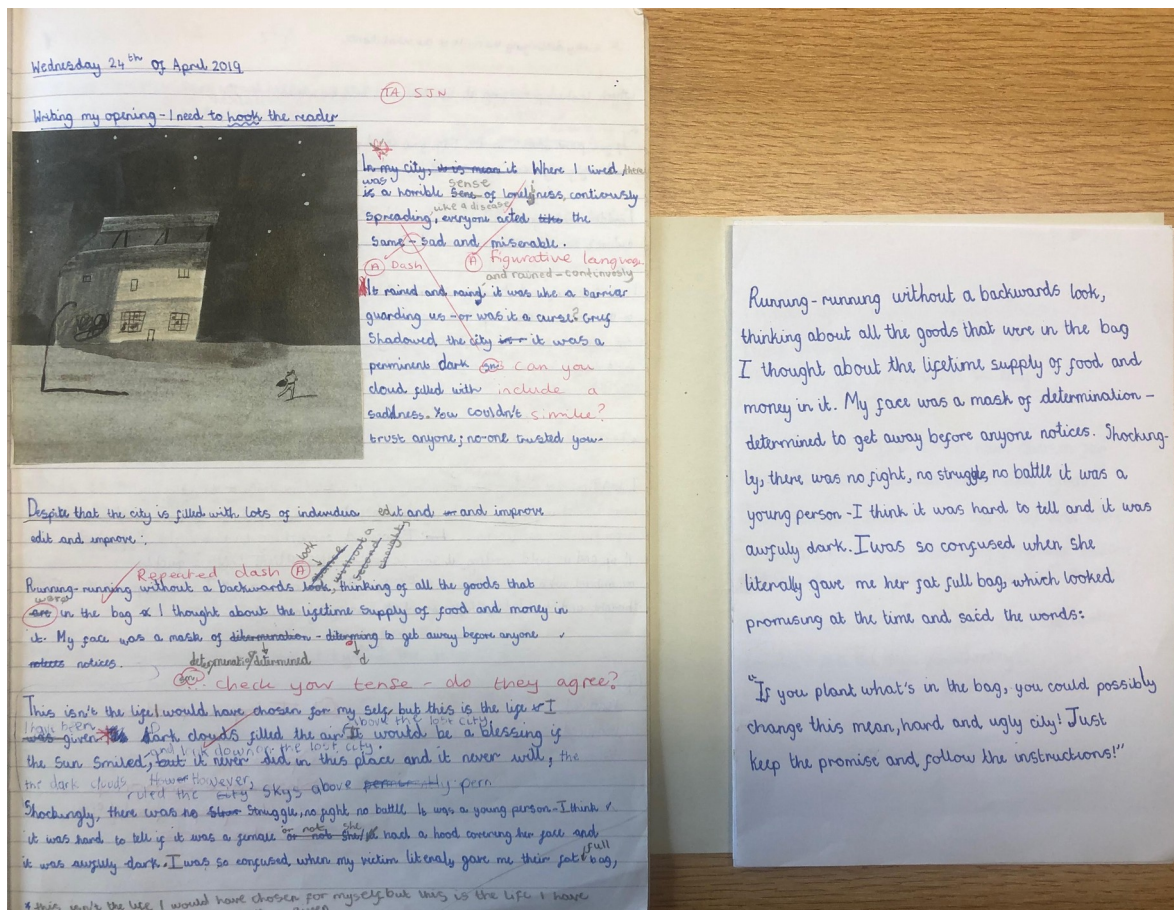 Wednesday 24th of April 2019
TA SJN
Writing my opening - I need to hook the reader
In my city, it is mean it Where I lived, there
was
is a horrible sens of loneliness, contiously
sense
like a disease
spreading, everyone acted like the
same - sad and miserable.
A Dash
A figurative language
and rained - continously
It rained and raind, it was like a barriar
guarding us - or was it a curse? Grey
Shadowed the city it was a
perminent dark
can you
cloud filled with
include a
saddness. You couldn't
simile?
trust anyone; no-one trusted you.
Despite that the city is filled with lots of individia edit and and improve
edit and improve:
look
without a
second
Repeated dash A
Running - running without a backwards look, thinking of all the goods that
were
are in the bag I thought about the lifetime supply of food and money in
it. My face was a mask of ditermination - diterming to get away before anyone
notices.
determination determined
d
check your tense - do they agree?
This isn't the life I would have chosen for my self but this is the life I
I have been
above the lost city
was given dark clouds filled the air It would be a blessing if
and look down on the lost city.
the sun smiled, but it never did in this place and it never will, the
the dark clouds However,
ruled the city skys above pern
Shockingly, there was no struggle, no fight no battle It was a young person - I think
or not she
it was hard to tell if it was a female or not she had a hood covering her face and
full
it was awfuly dark. I was so confused, when my victim literaly gave me their fat bag,
* this isn't the life I would have chosen for myself but this is the life I have
Running - running without a backwards look,
thinking about all the goods that were in the bag
I thought about the lifetime supply of food and
money in it. My face was a mask of determination -
determined to get away before anyone notices. Shocking-
ly, there was no fight, no struggle, no battle it was a
young person - I think it was hard to tell and it was
awfuly dark. I was so confused when she
literally gave me her fat full bag, which looked
promising at the time and said the words:
"If you plant what's in the bag, you could possibly
change this mean, hard and ugly city! Just
keep the promise and follow the instructions!"